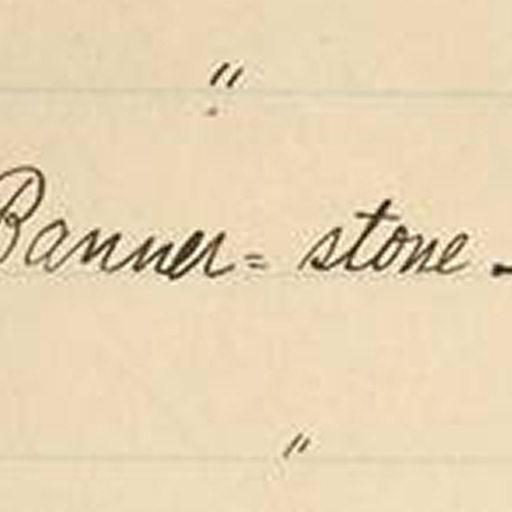 "
Banner= stone -
"